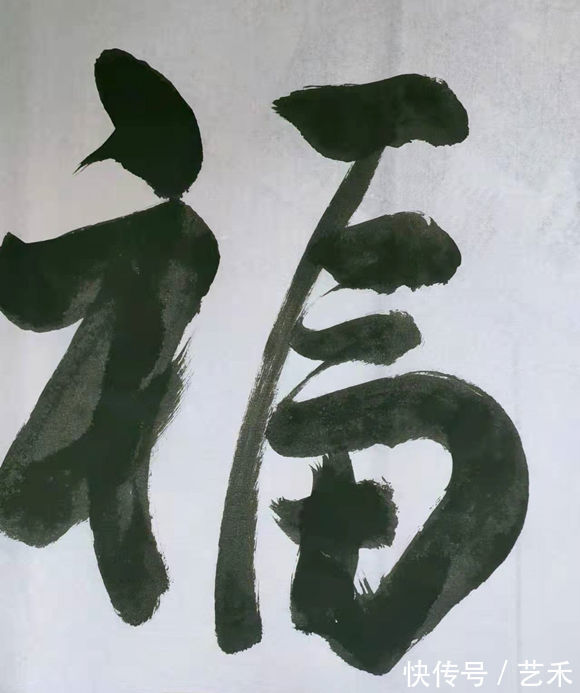 福
快传号 / 艺禾